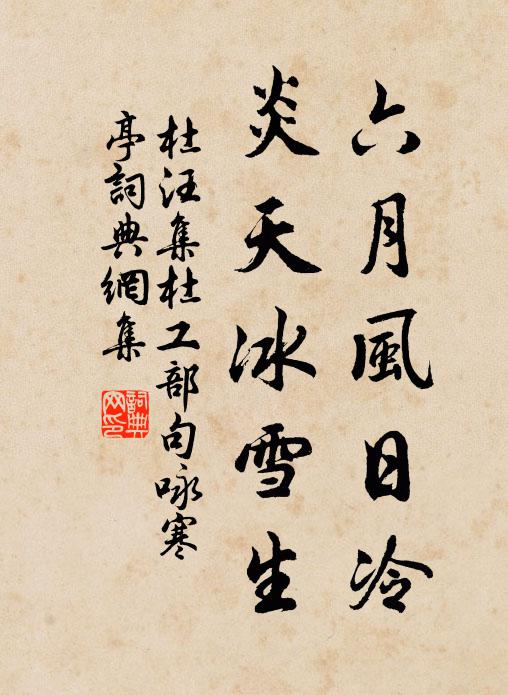 六月風日冷
炎天冰雪生
杜汪集杜工部句咏寒
亭詞典網集
詞典
网印